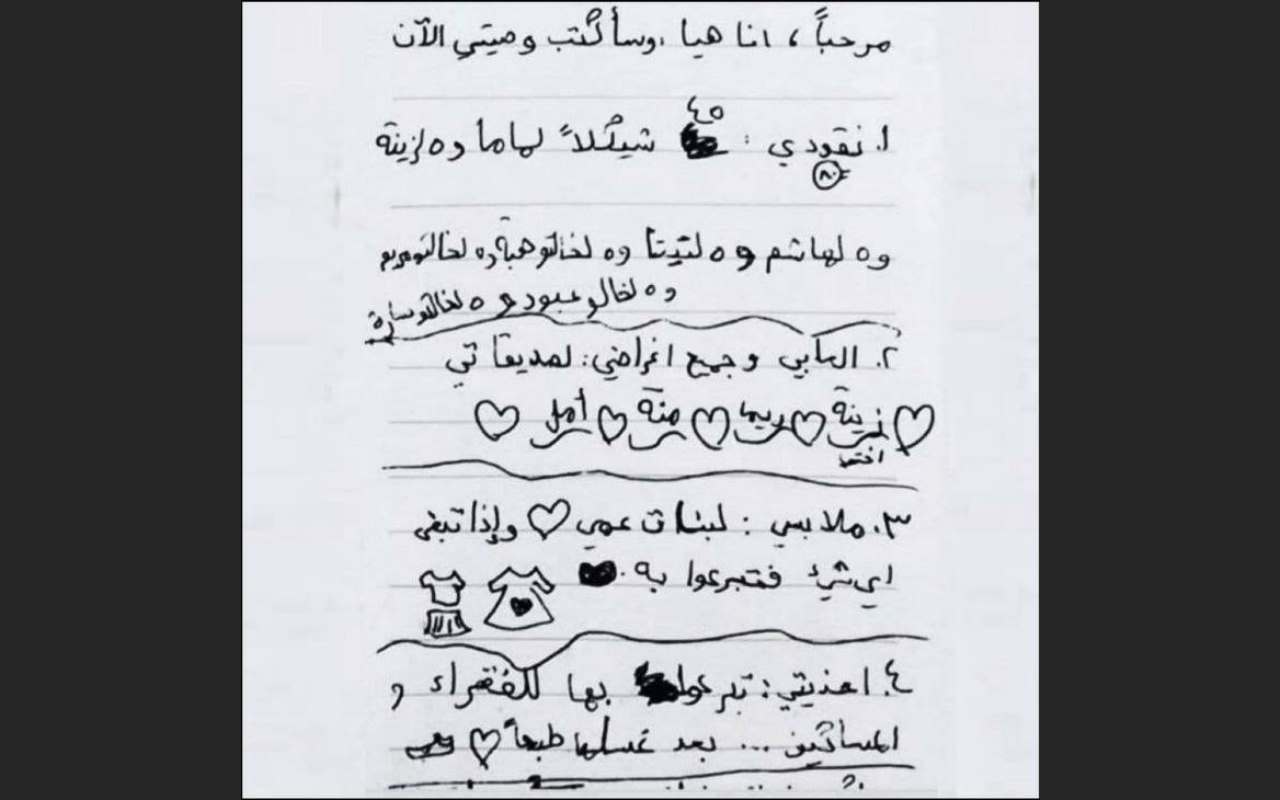 مرحباً ، انا هيا . وسأكتب وصيتي الآن
١. نقودي : ٤٥ شيكلاً لماما و٥ لزينة
٨٠
و٥ لهاشم و٥ لتيتا و٥ لخالتو هبة و٥ لخالتو مريم
و٥ لخالو عبود و٥ لخالتو سارة
٢. العابي وجميع اغراضي : لصديقاتي
زينة ريما منة أمل
اختي
٣. ملابسي : لبنات عمي وإذا تبقى
اي شيء فتبرعوا به .
٤. احذيتي : تبرعوا بها للفقراء و
المساكين ... بعد غسلها طبعاً